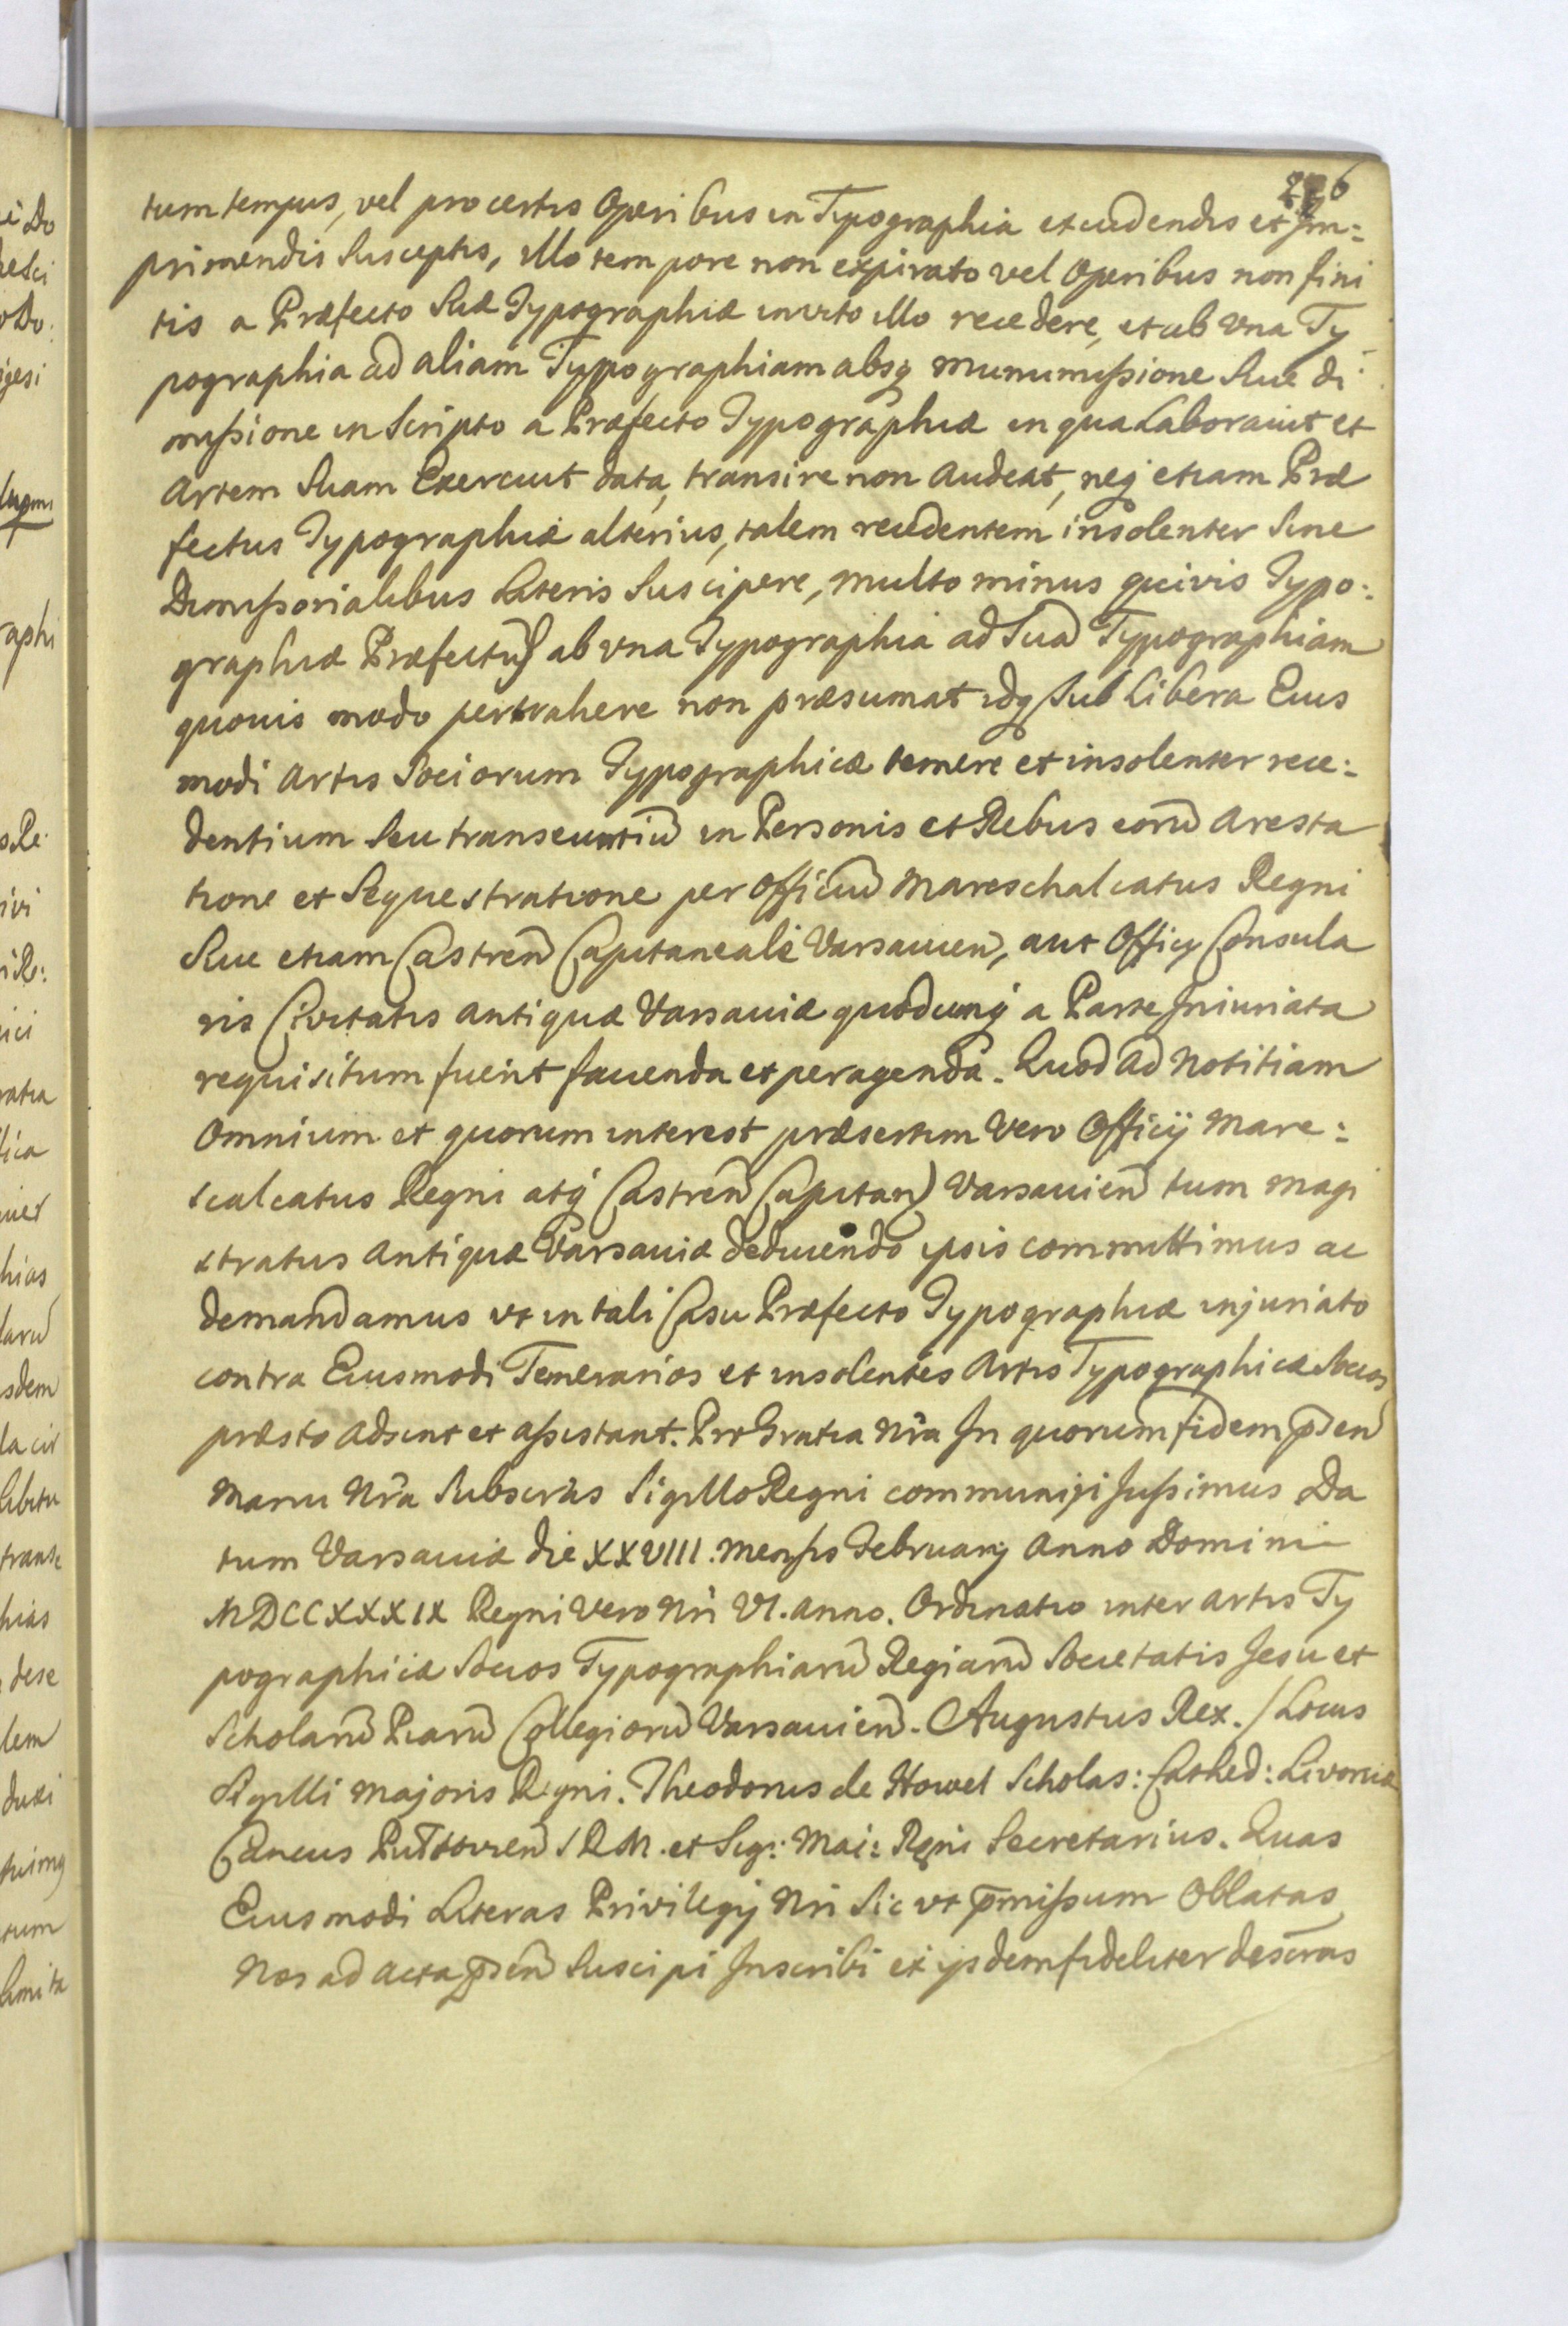 226
tum tempus, vel pro certis Operibus in Typographia excudendis et Im:
primendis Susceptis, illo tempore non expirato vel Operibus non fini
tis a Præfecto Suæ Typographiæ invito illo recedere, et ab Una Ty
pographia ad aliam Typpographiam absq manumissione Siue di
missione in Scripto a Præfecto Typographiæ in qua Laborauit et
Artem Suam Exercuit data, transire non Audeat, neq etiam Præ
fectus Typographiæ alterius, talem recedentem insolenter Sine
Dimissorialibus Literis Suscipere, multo minus quivis Typo:
graphiæ Præfectus ab vna Typographia ad Suã Typographiam
quouis modo pertrahere non præsumat idq Sub Libera Eius
modi Artis Sociorum Typographicæ temere et insolenter rece:
dentium Seu transeuntiũ in Personis et Rebus eorũ Aresta
tione et Sequestratione per Officiũ Mareschalcatus Regni
Siue etiam Castreñ Capitaneale Varsauien, aut Officy Consula
ris Civitatis Antiquæ Varsauiæ quodcunq a Parte Iniuriata
requisitum fuerit facienda et peragenda. Quod Ad Notitiam
Omnium et quorum interest præsertim Vero Officij Mare:
scalcatus Regni atq Castreñ Capitan Varsauieñ tum Magi
stratus Antiquæ Varsauiæ deducendo ipsis committimus ac
demandamus vt in tali Casu Præfecto Typographiæ injuriato
contra Eiusmodi Temerarios et insolentes Artis Typographicæ Socios
præsto Adsint et Assistant. Pro Gratia Nrã In quorum fidem p̃señ
Manu Nrã Subscras Sigillo Regni communiri Iussimus Da
tum Varsauiæ die XXVIII. Mensis February Anno Domini
MDCCXXXIX Regni Vero Nri VI. Anno. Ordinatio inter Artis Ty
pographicæ Socios Typographiarũ Regiarũ Societatis Jesu et
Scholarũ Piarũ Collegiorũ Varsauieñ. Augustus Rex. / Locus
Sigilli Majoris Regni. Theodorus de Howel Scholas: Cathed: Livoniæ
Cancus Pultovieñ S R M. et Sig: Mai: Regni Secretarius. Quas
Eiusmodi Literas Privilegij Nri Sic vt p̃missum Oblatas
Nos ad Acta p̃señ Suscipi Inscribi ex ijsdem fideliter descras